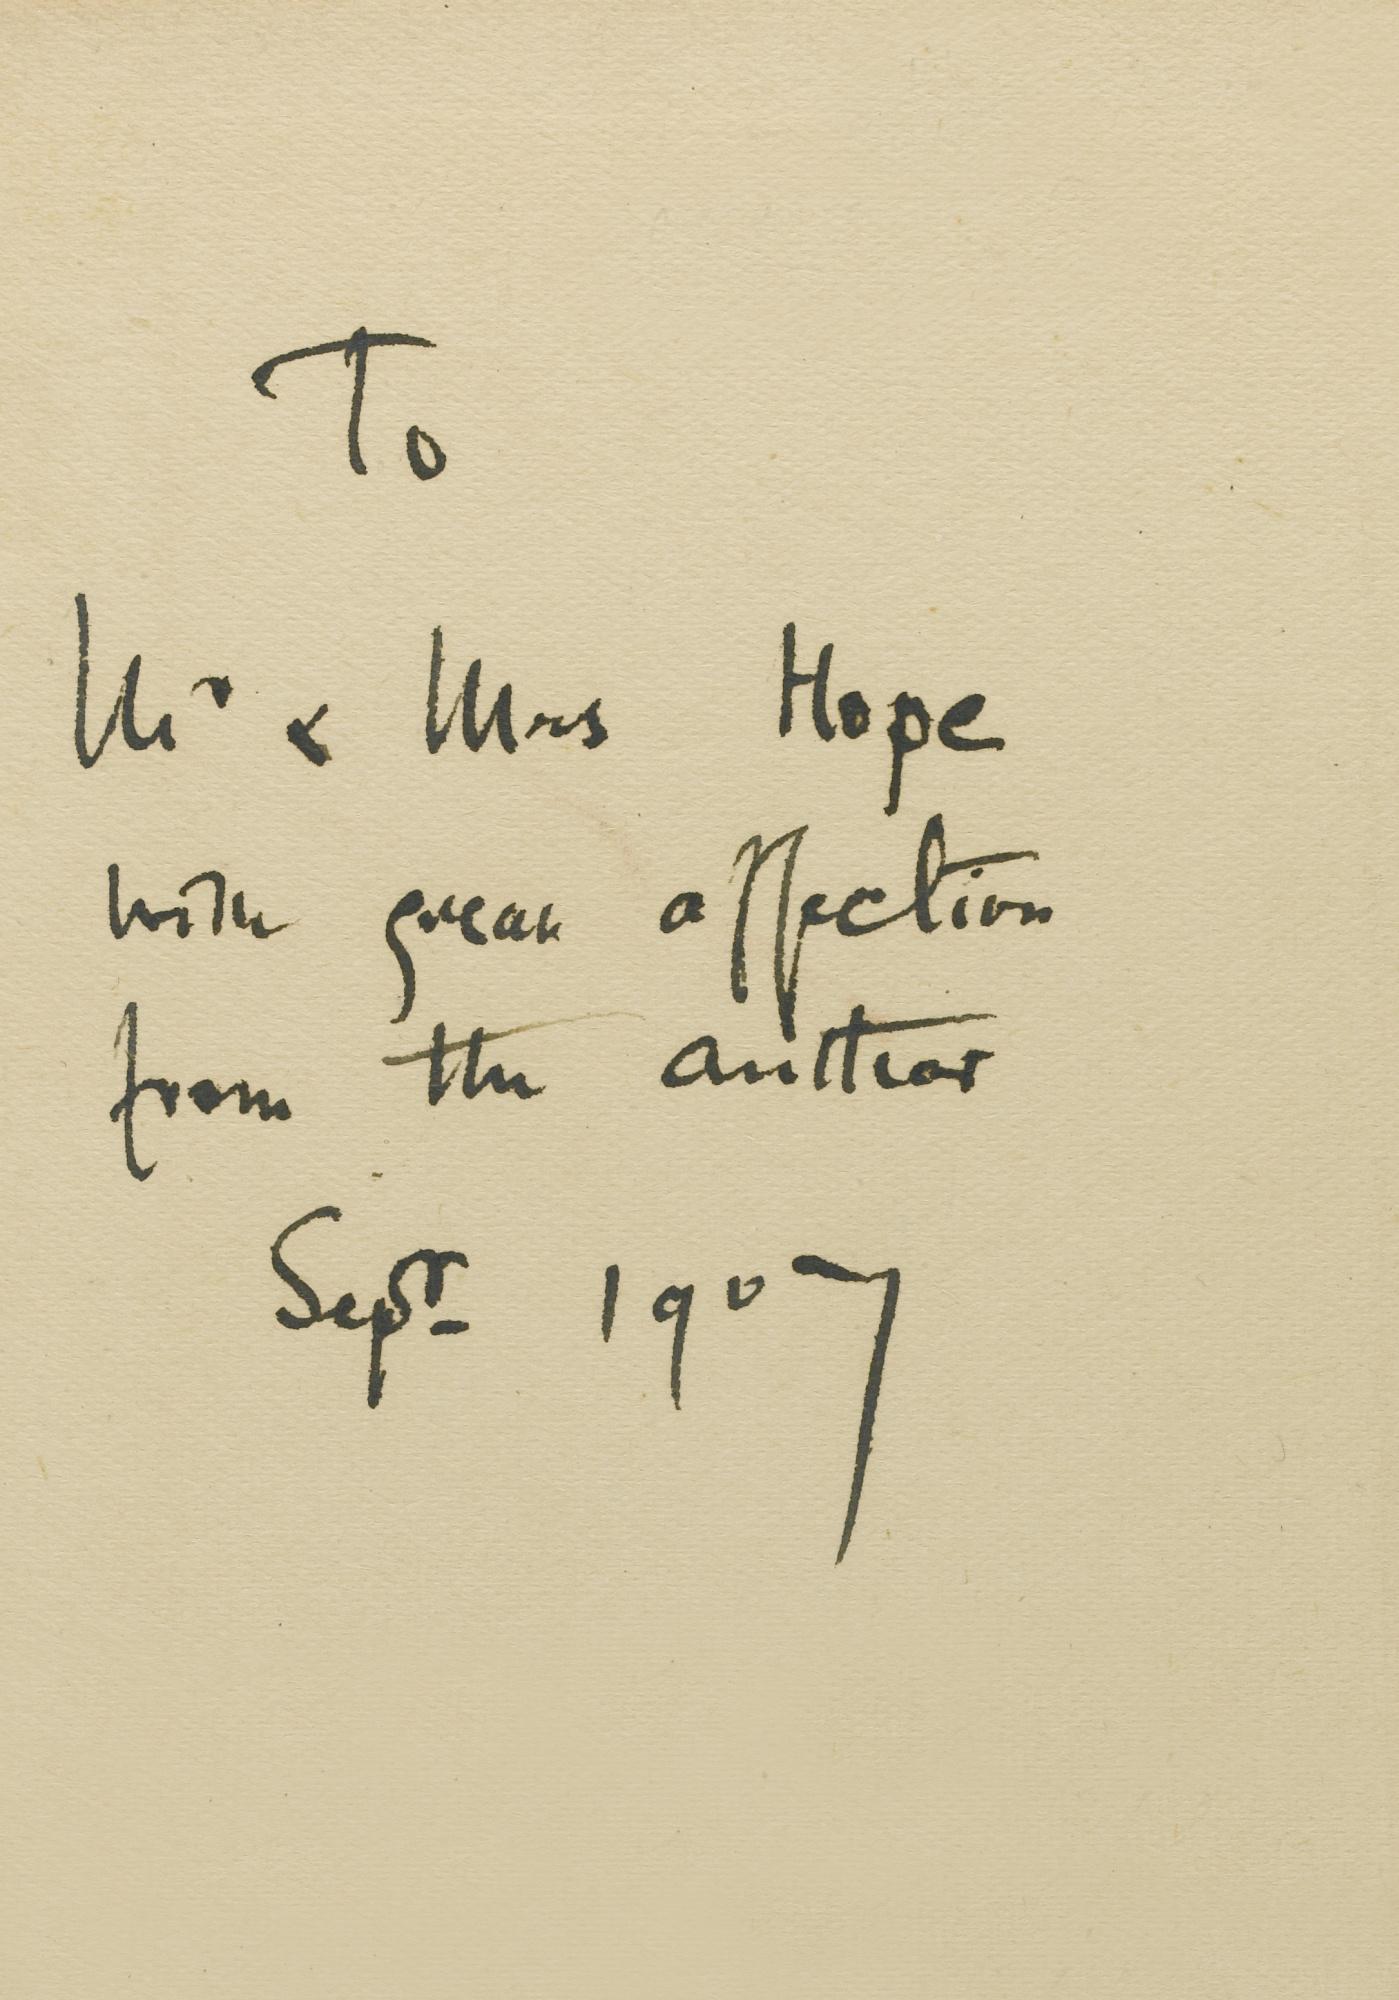 To
Mr & Mrs Hope
with great affection
from the author
Sept. 1907